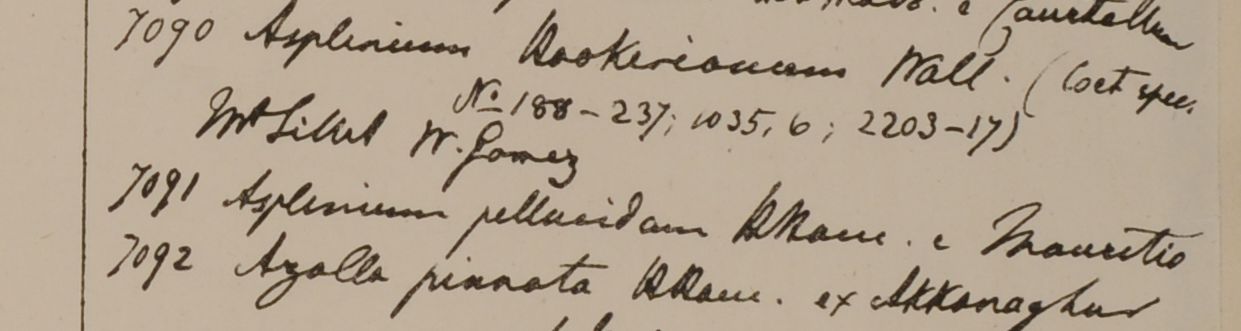 7090 Asplenium Hookerianum Wall. (Cet spec.
No 188-237; 1035, 6; 2203-17)
Mt Silhet W. Gomez
7091 Asplenium pellucidum e Mauritio
7092 Azolla pinnata ex Akkanaghur